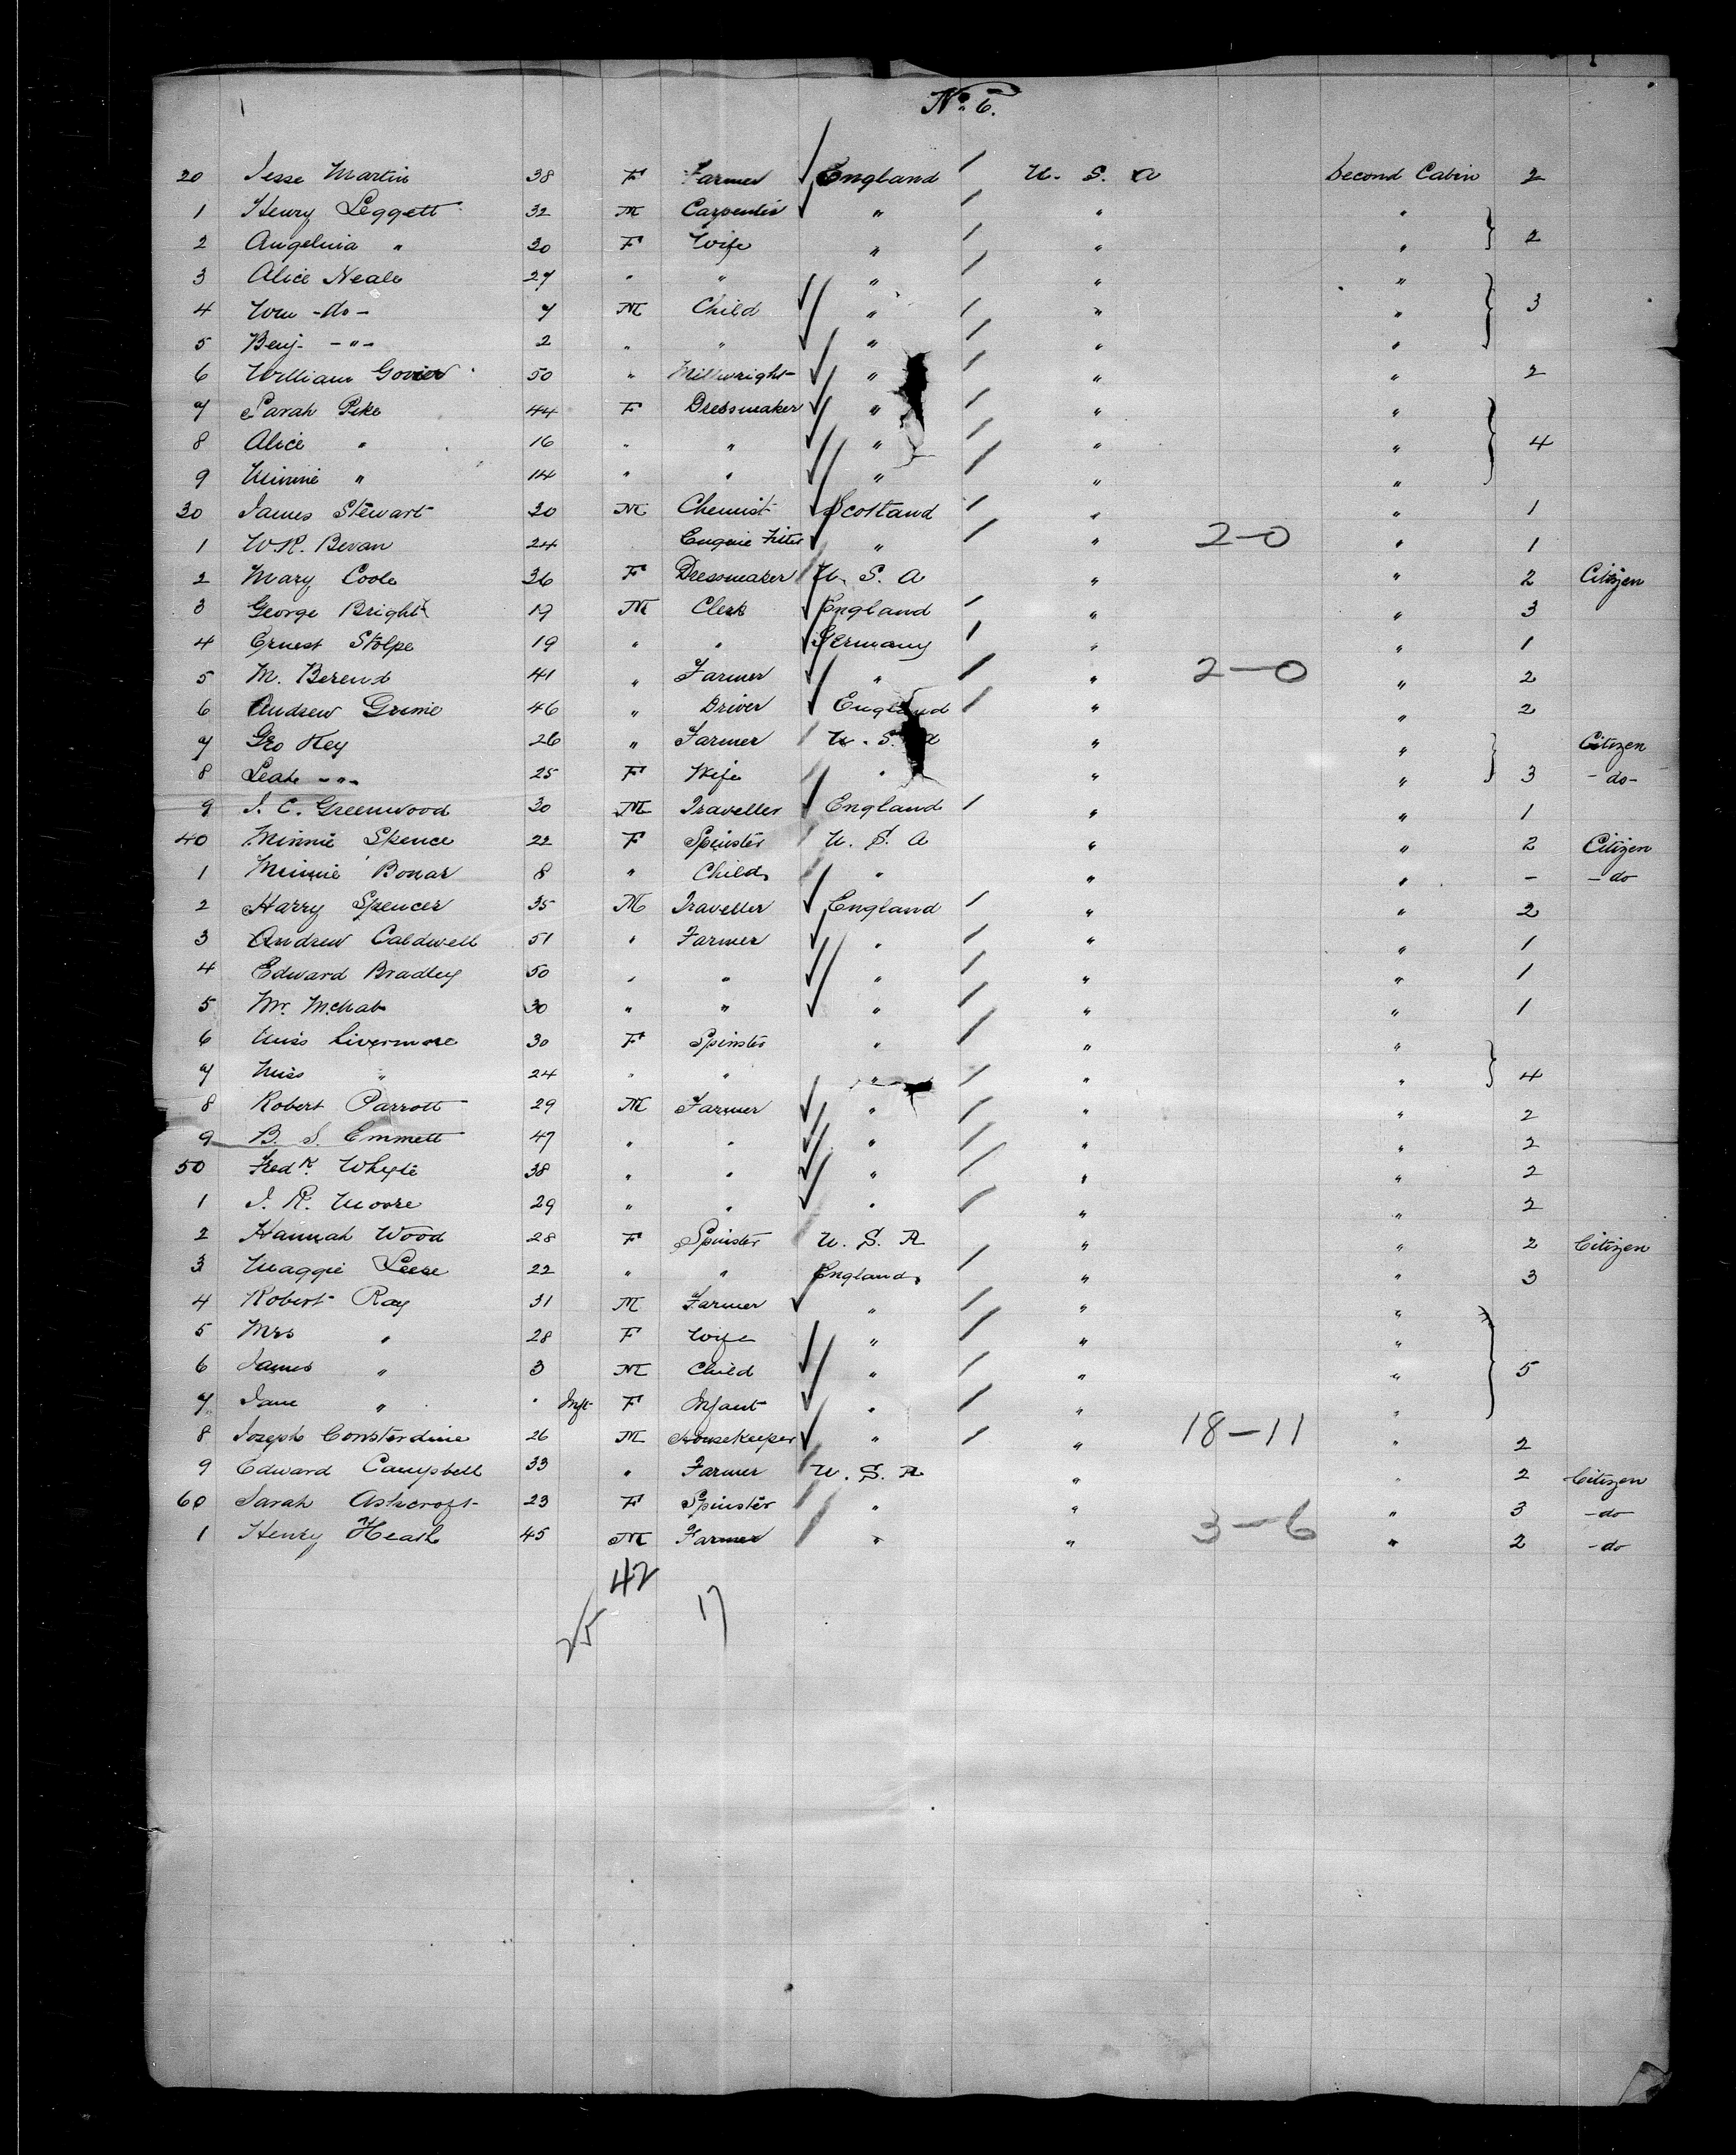 No. 6.
20 Jesse Martin 38 F Farmer England U. S. A Second Cabin 2
1 Henry Leggett 32 M Carpenter " " "
2 Angelina " 30 F Wife " " " 2
3 Alice Neale 27 " " " " "
4 Wm -do- 7 M Child " " " 3
5 Benj. -"- 2 " " " " "
6 William Govier 50 " Millwright " " " 2
7 Sarah Pike 44 F Dressmaker " " "
8 Alice " 16 " " " " " 4
9 Minnie " 14 " " " " "
30 James Stewart 20 M Chemist Scotland " " 1
1 W.R. Bevan 24 Engine Fitter " " 2-0 " 1
2 Mary Coole 36 F Dressmaker U. S. A " " 2 Citizen
3 George Bright 19 M Clerk England " " 3
4 Ernest Stolpe 19 " " Germany " " 1
5 M. Berend 41 " Farmer " " 2-0 " 2
6 Andrew Grime 46 " Driver England " " 2
7 Geo Key 26 " Farmer U. S. A " " Citizen
8 Leah -"- 25 F Wife " " " 3 -do-
9 J. C. Greenwood 30 M Traveller England " " 1
40 Minnie Spence 22 F Spinster U. S. A " " 2 Citizen
1 Minnie Bonar 8 " Child " " " - -do
2 Harry Spencer 35 M Traveller England " " 2
3 Andrew Caldwell 51 " Farmer " " " 1
4 Edward Bradley 50 " " " " " 1
5 Mr. McNab 30 " " " " " 1
6 Miss Livermore 30 F Spinster " " "
7 Miss " 24 " " " " " 4
8 Robert Parrott 29 M Farmer " " " 2
9 B. S. Emmett 47 " " " " " 2
50 Fredk. Whyte 38 " " " " " 2
1 J. R. Moore 29 " " " " " 2
2 Hannah Wood 28 F Spinster U. S. A " " 2 Citizen
3 Maggie Leese 22 " " England " " 3
4 Robert Ray 31 M Farmer " " "
5 Mrs " 28 F Wife " " "
6 James " 3 M Child " " " 5
7 Jane " " Inft F Infant " " "
8 Joseph Consterdine 26 M Housekeeper " " 18-11 " 2
9 Edward Campbell 33 " Farmer U. S. A " " 2 Citizen
60 Sarah Ashcroft 23 F Spinster " " " 3 -do
1 Henry Heath 45 M Farmer " " 3-6 " 2 -do
42
25 17